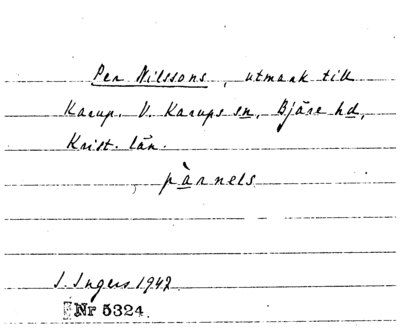 Per Nilssons, utmark till
Karup. V. Karups sn, Bjäre hd,
Krist. län.
pàrnels
I. Ingers 1942
Nr 5324